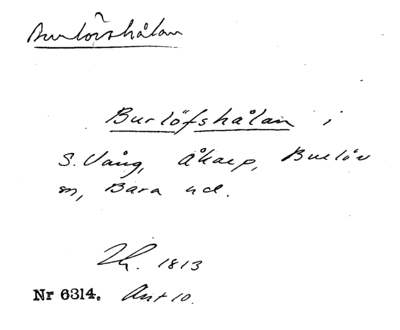 Burlövshålan
Burlöfshålan i
S. Vång, Åkarp, Burlöv
sn, Bara hd.
1813
Nr 6314. Ant 10.